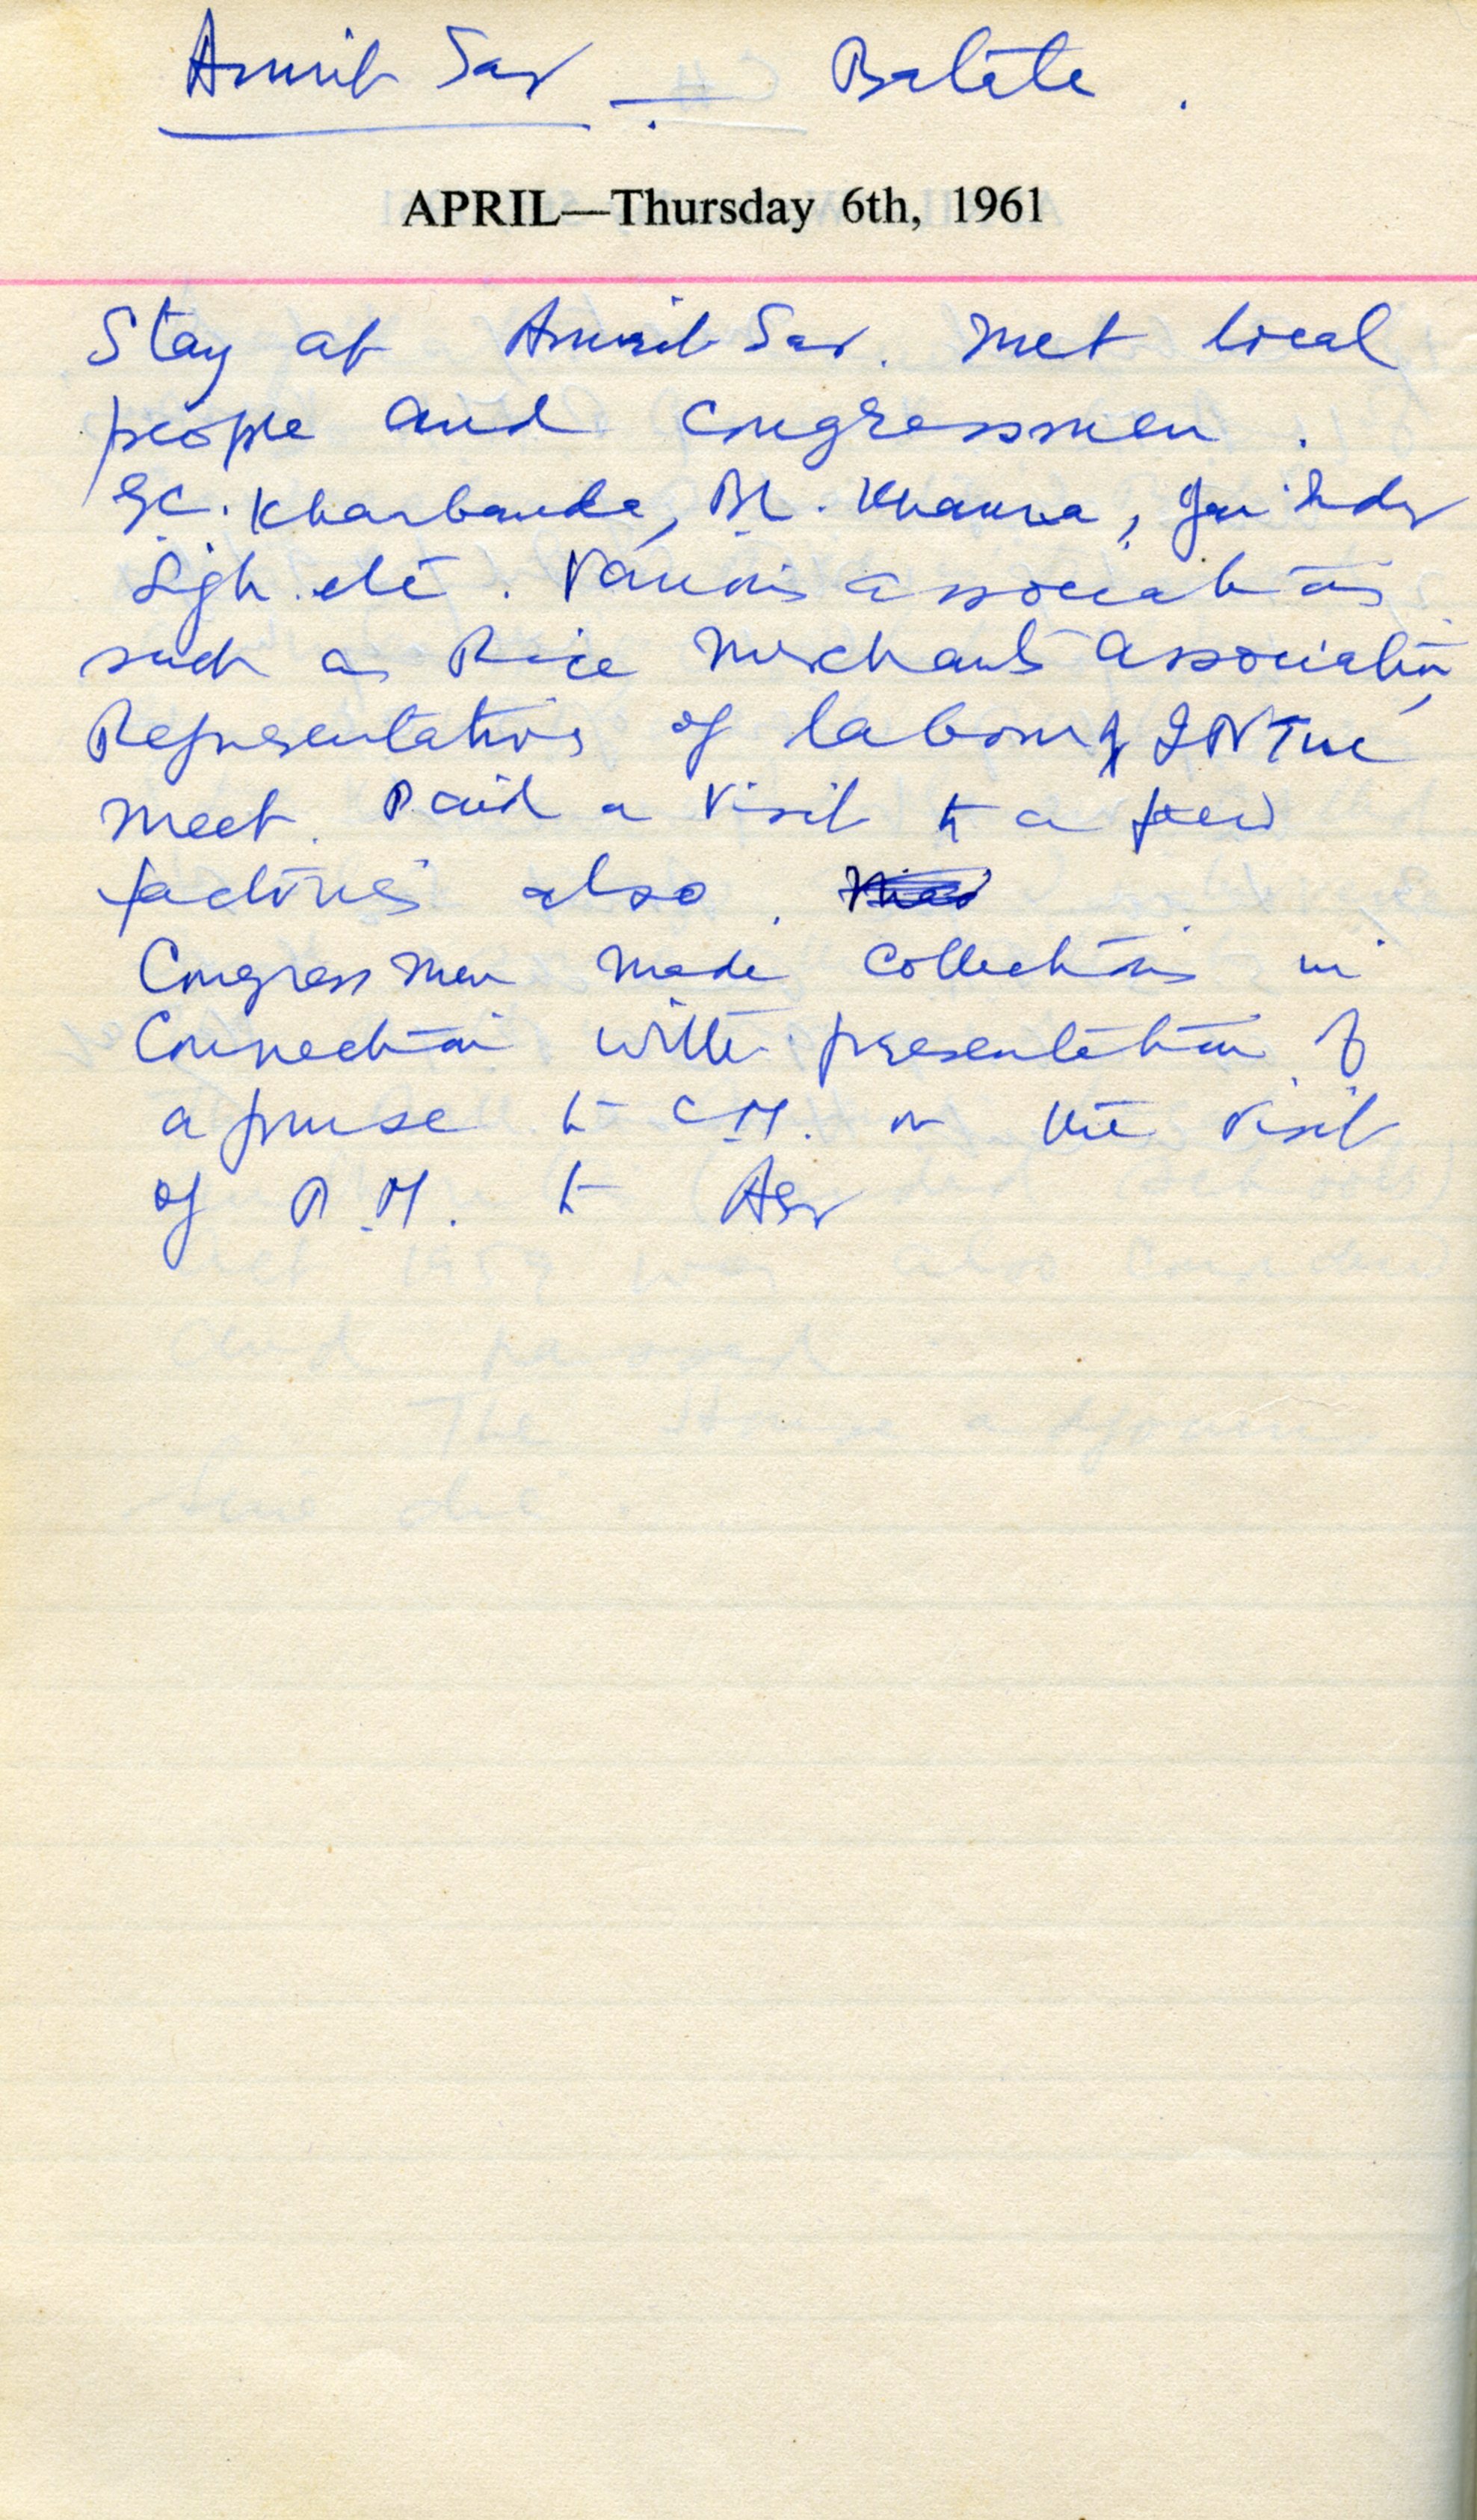 Amrit Sar — Batala .
APRIL—Thursday 6th, 1961
Stay at Amrit Sar. Met local
people and Congressmen .
Kharbanda, Khanna, Jai Inder
Sigh etc . Various associations
such as Rice Merchants Association,
Representatives of labour of INTUC
meet. Paid a visit to a few
factories also .
Congress Men made collections in
Connection with presentation of
a purse to C.M. on the visit
of P.M. to Asr